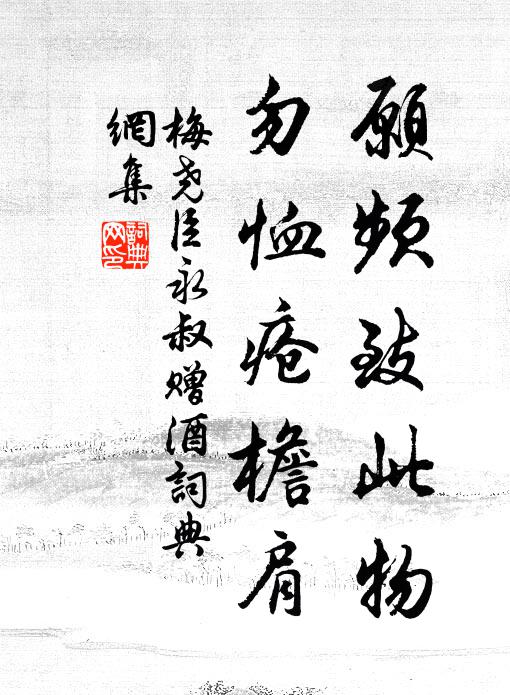 願頻致此物
勿恤瘡檐肩
梅堯臣永叔贈酒詞典
網集
詞典
网印